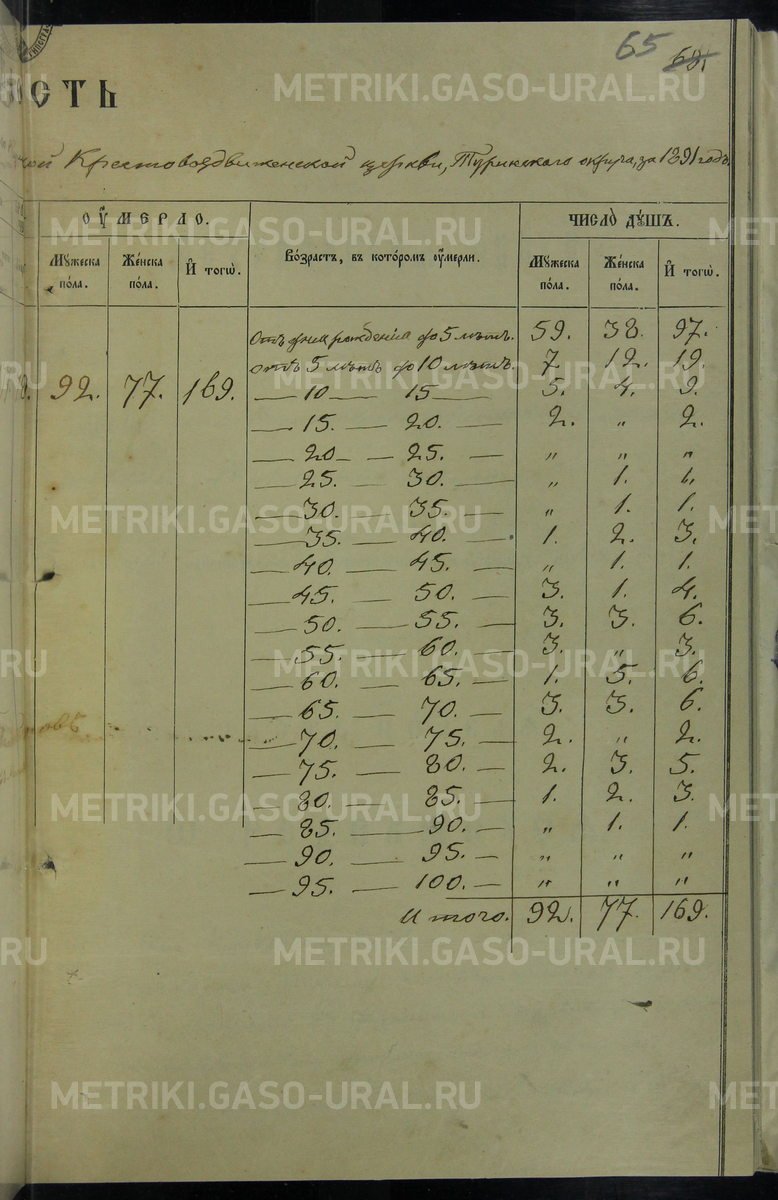 65 68.
ОСТЬ
Крестовоздвиженской церкви, Туринского округа, за 1891 годъ.
ОУМЕРЛО. ЧИСЛО ДУШЪ.
Мужеска пола. Женска пола. И тогѡ. Возрастъ, въ которомъ оумерли. Мужеска пола. Женска пола. И тогѡ.
Отъ дня рожденія до 5 лѣтъ. 59. 38. 97.
отъ 5 лѣтъ до 10 лѣтъ. 7. 12. 19.
92. 77. 169. — 10 — 15 — 5. 4. 9.
— 15. — 20. — 2. „ 2.
— 20 — 25. — „ „ „
— 25. — 30. — „ 1. 1.
— 30. — 35. — „ 1. 1.
— 35. — 40. — 1. 2. 3.
— 40. — 45. — „ 1. 1.
— 45. — 50. — 3. 1. 4.
— 50. — 55. — 3. 3. 6.
— 55. — 60. — 3. „ 3.
— 60. — 65. — 1. 5. 6.
— 65. — 70. — 3. 3. 6.
— 70. — 75. — 2. „ 2.
— 75. — 80. — 2. 3. 5.
— 80. — 85. — 1. 2. 3.
— 85. — 90. — „ 1. 1.
— 90. — 95. — „ „ „
— 95. — 100. — „ „ „
Итого. 92. 77. 169.
METRIKI.GASO-URAL.RU